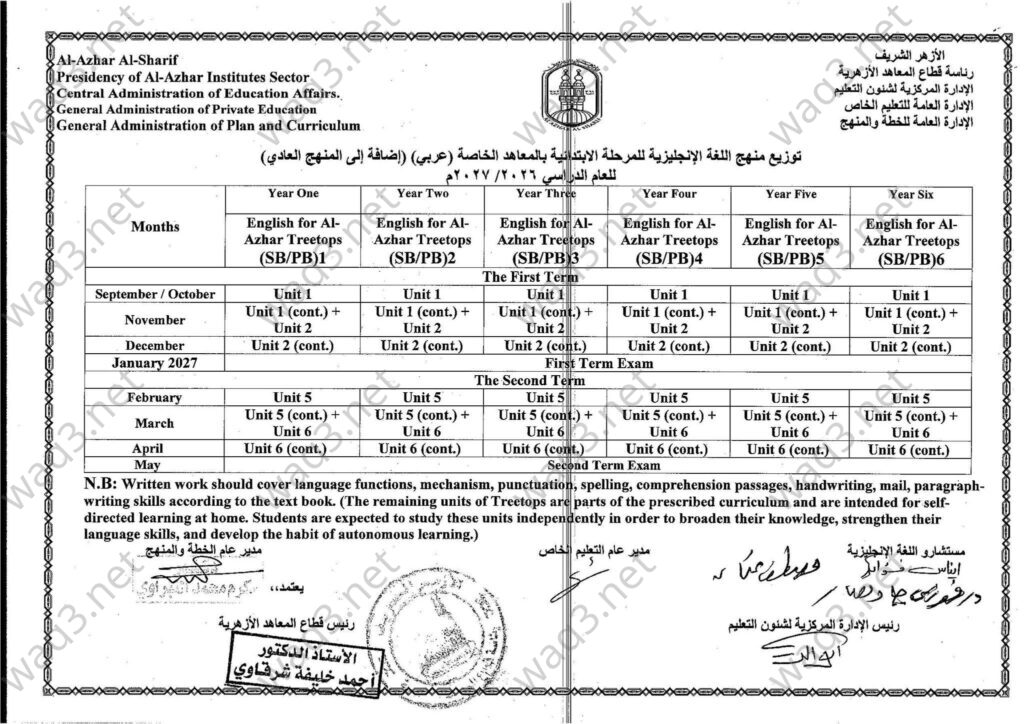 Al-Azhar Al-Sharif
Presidency of Al-Azhar Institutes Sector
Central Administration of Education Affairs.
General Administration of Private Education
General Administration of Plan and Curriculum
الأزهر الشريف
رئاسة قطاع المعاهد الأزهرية
الإدارة المركزية لشئون التعليم
الإدارة العامة للتعليم الخاص
الإدارة العامة للخطة والمنهج
توزيع منهج اللغة الإنجليزية للمرحلة الابتدائية بالمعاهد الخاصة (عربي) (إضافة إلى المنهج العادي)
للعام الدراسي ٢٠٢٦/ ٢٠٢٧م
Months Year One Year Two Year Three Year Four Year Five Year Six
English for Al-Azhar Treetops (SB/PB)1 English for Al-Azhar Treetops (SB/PB)2 English for Al-Azhar Treetops (SB/PB)3 English for Al-Azhar Treetops (SB/PB)4 English for Al-Azhar Treetops (SB/PB)5 English for Al-Azhar Treetops (SB/PB)6
The First Term
September / October Unit 1 Unit 1 Unit 1 Unit 1 Unit 1 Unit 1
November Unit 1 (cont.) + Unit 2 Unit 1 (cont.) + Unit 2 Unit 1 (cont.) + Unit 2 Unit 1 (cont.) + Unit 2 Unit 1 (cont.) + Unit 2 Unit 1 (cont.) + Unit 2
December Unit 2 (cont.) Unit 2 (cont.) Unit 2 (cont.) Unit 2 (cont.) Unit 2 (cont.) Unit 2 (cont.)
January 2027 First Term Exam
The Second Term
February Unit 5 Unit 5 Unit 5 Unit 5 Unit 5 Unit 5
March Unit 5 (cont.) + Unit 6 Unit 5 (cont.) + Unit 6 Unit 5 (cont.) + Unit 6 Unit 5 (cont.) + Unit 6 Unit 5 (cont.) + Unit 6 Unit 5 (cont.) + Unit 6
April Unit 6 (cont.) Unit 6 (cont.) Unit 6 (cont.) Unit 6 (cont.) Unit 6 (cont.) Unit 6 (cont.)
May Second Term Exam
N.B: Written work should cover language functions, mechanism, punctuation, spelling, comprehension passages, handwriting, mail, paragraph-
writing skills according to the text book. (The remaining units of Treetops are parts of the prescribed curriculum and are intended for self-
directed learning at home. Students are expected to study these units independently in order to broaden their knowledge, strengthen their
language skills, and develop the habit of autonomous learning.)
مستشارو اللغة الإنجليزية
مدير عام التعليم الخاص
مدير عام الخطة والمنهج
يعتمد،،
رئيس الإدارة المركزية لشئون التعليم
رئيس قطاع المعاهد الأزهرية
الأستاذ الدكتور
أحمد خليفة شرقاوي
wad3.net